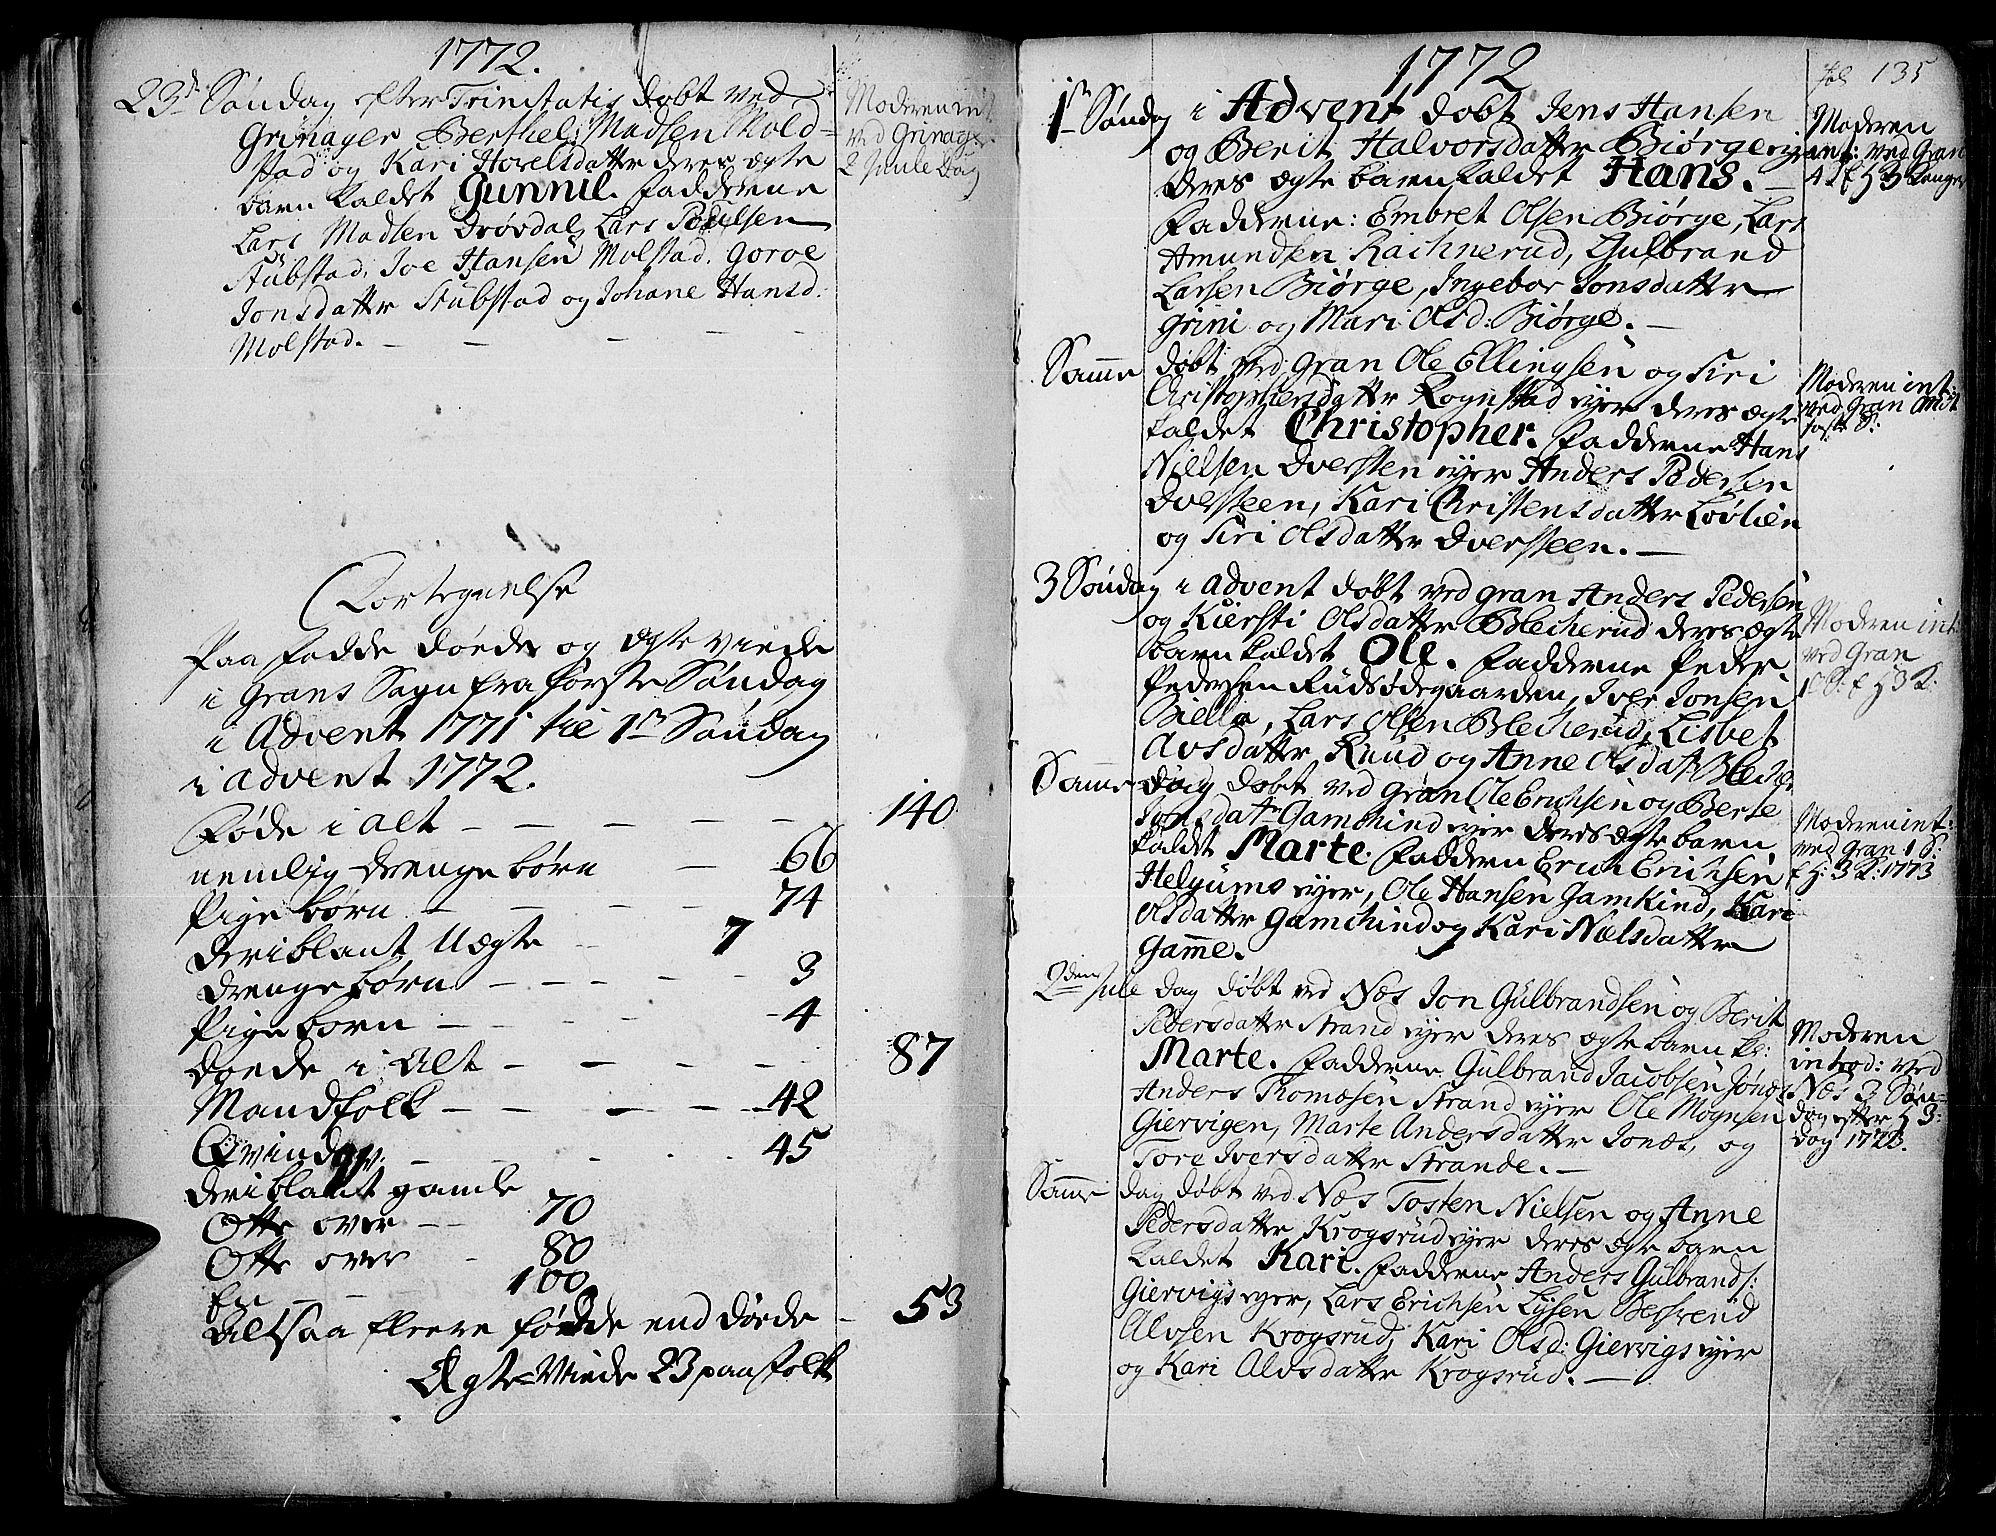 1772.
23de Søndag efter Trinitatis døbt ved
Grinager Berthel Madsen Mold-
stad og Kari Hovelsdatter deres ægte
barn kaldet Gunnil. Fadderne
Lars Madsen Drøvdal, Lars Poulsen
Stubstad, Joe Hansen Molstad. Goroe
Jonsdatter Stubstad og Johane Hansd:
Molstad.
Moderen int.
ved Grinager
2 Juule Dag
Fortegnelse
Paa fødde døede og ægte viede
i Grans Sogn fra første Søndag
i Advent 1771 til 1ste Søndag
i advent 1772.
Føde i alt 140
nemlig drenge børn 66
Pige børn 74
deriblant Uægte 7
drenge børn 3
Pige børn 4
døede i alt 87
Mandfolk 42
Qvinder 45
deriblant gamle
Otte over 70
Otte over 80
En 100
altsaa fleere fødde end døede 53
Ægte-Viede 23 paar folk
1772
fol 135
1ste Søndag i Advent døbt Jens Hansen
og Berit Halvorsdatter Biørge eier
deres ægte barn kaldet Hans.
Fadderne: Embret Olsen Biørge, Lars
Amundsen Rachnerud, Gulbrand
Larsen Biørge, Ingebor Jonsdatter
Grini og Mari Olsd: Biørge.
Moderen
int: ved Gran
Samme døbt ved Gran Ole Ellingsen og Siri
Christophersdatter Rognstad eyer deres ægte
kaldet Christopher. Fadderne Hans
Nielsen Dversten eyer Anders Pedersen
Dversteen, Kari Christensdatter Løvlien
og Siri Olsdatter Dversteen.
Moderen int:
ved Gran Midt
faste S:
3 Søndag i advent døbt ved Gran Anders Pedersen
og Kiersti Olsdatter Blecherud deres ægte
barn kaldet Ole. Fadderne Peder
Pedersen Rudsødegaarden, Iver Jonsen
Biella, Lars Olsen Blecherud, Lisbet
Avsdatter Ruud og Anne Olsdat:
Moderen int
ved Gran
1 S: e H 3 K.
Samme dag døbt ved Gran Ole Erichsen og Berte
Jonsdatr Gamchind eyer deres ægte barn
kaldet Marte. Faddern Erich Erichsen
Helgums eyer, Ole Hansen Gamkind, Kari
Olsdatter Gamchind og Kari Nielsdatter
Gamme.
Moderen int:
ved Gran 1 S:
e H: 3 K: 1773
2den Jule dag døbt ved Næs Jon Gulbrandsen og Berit
Pedersdatter Strand eyer deres ægte barn k:
Marte. Fadderne Gulbrand Jacobsen Jonæs,
Anders Thomæsen Strand eyer Ole Mognsen
Giervigen, Marte Andersdatter Jonæs, og
Tore Iversdatter Strande.
Moderen
introd: ved
Næs 2 Søn-
dag efter H 3:
dag 1773.
Samme dag døbt ved Næs Tosten Nielsen og Anne
Pedersdatter Krogsrud eyer deres ægte barn
kaldet Kari. Fadderne Anders Gulbrands:
Giervigs eyer, Lars Erichsen Lysen
Alvsen Krogsrud, Kari Olsd: Giervigs eyer
og Kari Alvsdatter Krogsrud.